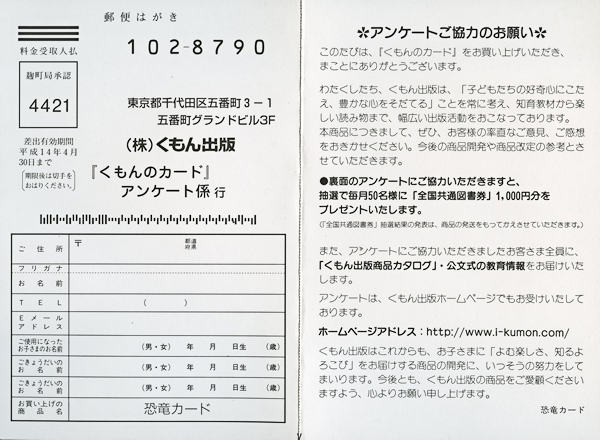 郵便はがき
料金受取人払
102-8790
麹町局承認
4421
差出有効期間
平成14年4月
30日まで
（期限後は切手を
おはりください。）
東京都千代田区五番町3－1
五番町グランドビル3F
（株）くもん出版
『くもんのカード』
アンケート係 行
ご住所
〒
都道
府県
フリガナ
お名前
TEL
（　　）
Eメール
アドレス
ご使用になった
お子さまのお名前
（男・女）　年　月　日生　（歳）
ごきょうだいの
お名前
（男・女）　年　月　日生　（歳）
ごきょうだいの
お名前
（男・女）　年　月　日生　（歳）
お買い上げの
商品名
恐竜カード
✲アンケートご協力のお願い✲
このたびは、『くもんのカード』をお買い上げいただき、
まことにありがとうございます。
わたくしたち、くもん出版は、「子どもたちの好奇心にこた
え、豊かな心をそだてる」ことを常に考え、知育教材から楽
しい読み物まで、幅広い出版活動をおこなっております。
本商品につきまして、ぜひ、お客様の率直なご意見、ご感想
をおきかせください。今後の商品開発や商品改定の参考とさ
せていただきます。
●裏面のアンケートにご協力いただきますと、
抽選で毎月50名様に「全国共通図書券」1,000円分を
プレゼントいたします。
（「全国共通図書券」抽選結果の発表は、商品の発送をもってかえさせていただきます。）
また、アンケートにご協力いただきましたお客さま全員に、
「くもん出版商品カタログ」・公文式の教育情報をお届けいた
します。
アンケートは、くもん出版ホームページでもお受けいたして
おります。
ホームページアドレス：http://www.i-kumon.com/
くもん出版はこれからも、お子さまに「よむ楽しさ、知るよ
ろこび」をお届けする商品の開発に、いっそうの努力をして
まいります。今後とも、くもん出版の商品をご愛顧ください
ますよう、心よりお願い申し上げます。
恐竜カード